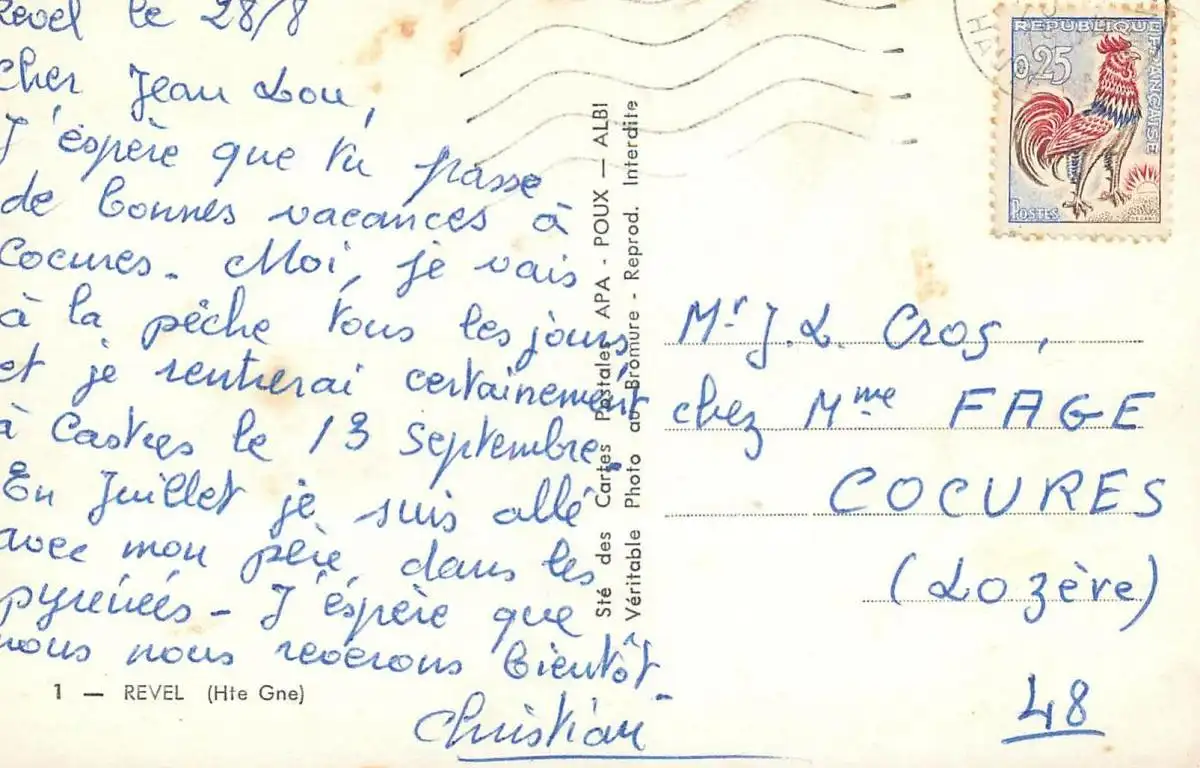 Revel le 28/8
cher Jean Lou,
J'éspère que tu passe
de bonnes vacances à
Cocures. Moi, je vais
à la pêche tous les jours
et je rentrerai certainement
à Castres le 13 Septembre.
En Juillet je suis allé
avec mon père, dans les
pyrénées - J'éspère que
nous nous reverons bientôt.
Christian
1 — REVEL (Hte Gne)
Sté des Cartes Postales APA - POUX — ALBI
Véritable Photo au Bromure - Reprod. Interdite
REPUBLIQUE FRANÇAISE
0,25
POSTES
Mr J.L. Cros,
chez Mme FAGE
COCURES
(Lozère)
48